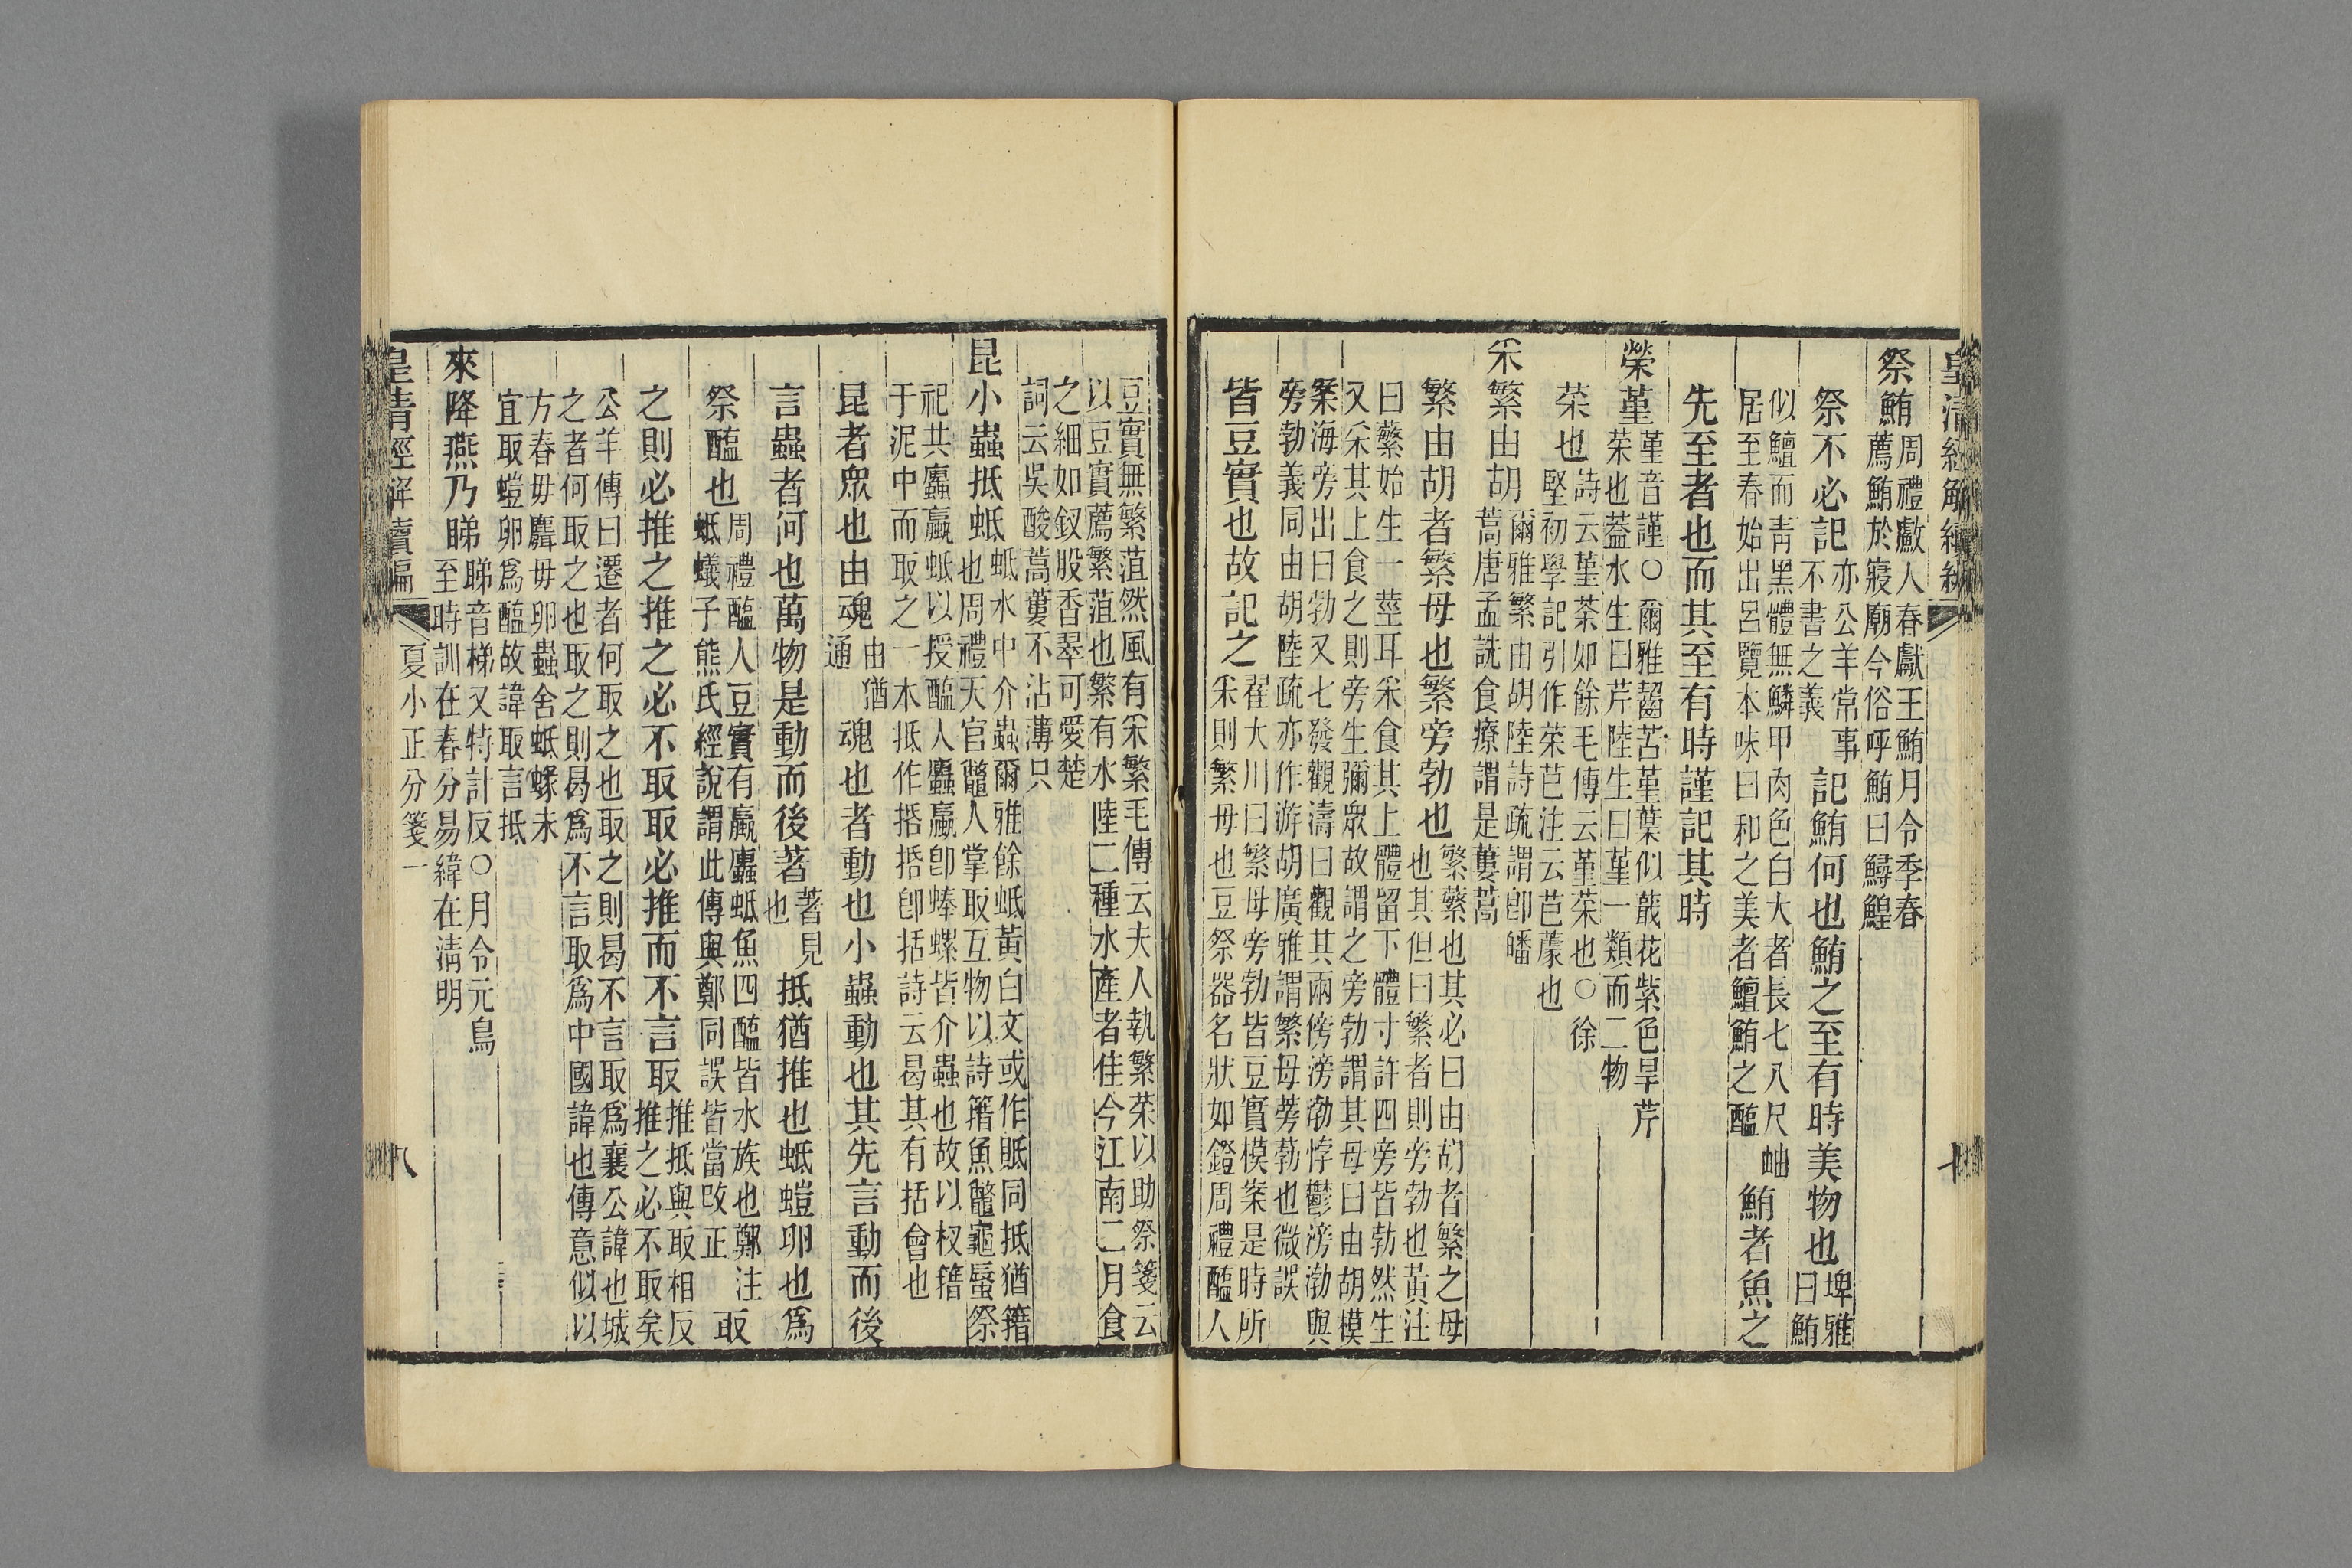 皇清經解續編
祭鮪周禮䱷人春獻王鮪月令季春
薦鮪於寢廟今俗呼鮪曰鱘鰉
祭不必記亦公羊常事
不書之義記鮪何也鮪之至有時美物也埤雅
曰鮪
似鱣而靑黑體無鱗甲肉色白大者長七八尺岫
居至春始出呂覽本味曰和之美者鱣鮪之醢鮪者魚之
先至者也而其至有時謹記其時
榮菫菫音謹○爾雅齧苦菫葉似蕺花紫色旱芹
菜也葢水生曰芹陸生曰菫一類而二物
菜也詩云菫荼如餘毛傳云菫菜也○徐
堅初學記引作菜芑注云芑蒙也
采繁由胡爾雅繁由胡陸詩疏謂卽皤
蒿唐孟詵食療謂是蔞蒿
繁由胡者繁母也繁旁勃也繁蘩也其必曰由胡者繁之母
也其但曰繁者則旁勃也黃注
曰蘩始生一莖耳采食其上體留下體寸許四旁皆勃然生
又采其上食之則旁生彌眾故謂之旁勃謂其母曰由胡模
案海旁出曰勃又七發觀濤曰觀其兩傍滂渤悖鬱滂渤與
旁勃義同由胡陸疏亦作游胡廣雅謂繁母蒡葧也微誤
皆豆實也故記之翟大川曰繁母旁勃皆豆實模案是時所
采則繁母也豆祭器名狀如鐙周禮醢人
豆實無繁菹然風有采繁毛傳云夫人執繁菜以助祭箋云
以豆實薦繁菹也繁有水陸二種水產者佳今江南二月食
之細如釵股香翠可愛楚
詞云吳酸蒿蔞不沾薄只
昆小蟲抵蚳蚳水中介蟲爾雅餘蚳黃白文或作貾同抵猶籍
也周禮天官鼈人掌取互物以詩籍魚鼈龜蜃祭
祀共蠯蠃蚳以授醢人蠯蠃卽蜯螺皆介蟲也故以杈籍
于泥中而取之一本抵作捪捪卽括詩云曷其有括會也
昆者眾也由魂由猶
通魂也者動也小蟲動也其先言動而後
言蟲者何也萬物是動而後著著見
也抵猶推也蚳螘卵也爲
祭醢也周禮醢人豆實有蠃蠯蚳魚四醢皆水族也鄭注
蚳蟻子熊氏經說謂此傳與鄭同誤皆當改正取
之則必推之推之必不取取必推而不言取推抵與取相反
推之必不取矣
公羊傳曰遷者何取之也取之則曷不言取爲襄公諱也城
之者何取之也取之則曷爲不言取爲中國諱也傳意似以
方春毋麛毋卵蟲舍蚳蝝未
宜取螘卵爲醢故諱取言抵
來降燕乃睇睇音梯又特計反○月令元鳥
至時訓在春分易緯在淸明
皇清經解續編
夏小正分箋一
八